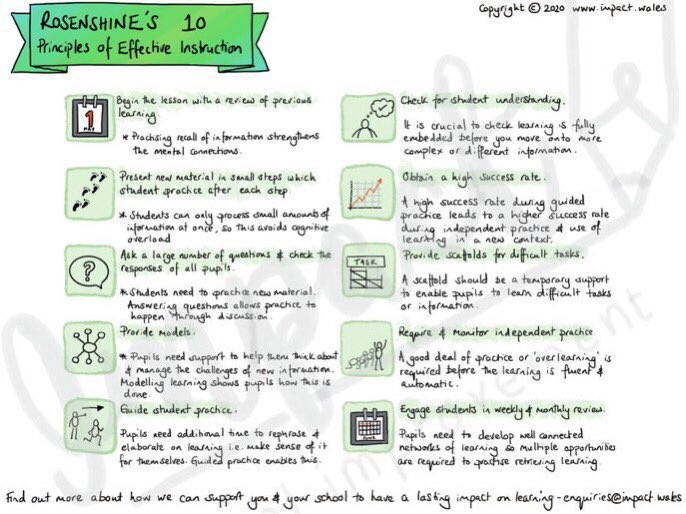 ROSENSHINE'S 10
Principles of Effective Instruction
Copyright © 2020 www.impact.wales
Begin the lesson with a review of previous
learning
* Practising recall of information strengthens
the mental connections.
1
MAY
Present new material in small steps which
student practice after each step.
* Students can only process small amounts of
information at once, so this avoids cognitive
overload
Ask a large number of questions & check the
responses of all pupils.
?
* Students need to practice new material.
Answering questions allows practice to
happen through discussion.
Provide models.
* Pupils need support to help them think about
& manage the challenges of new information.
Modelling learning shows pupils how this is
done.
Guide student practice.
Pupils need additional time to rephrase &
elaborate on learning i.e. make sense of it
for themselves. Guided practice enables this.
Check for student understanding.
It is crucial to check learning is fully
embedded before you move onto more
complex or different information.
Obtain a high success rate.
A high success rate during guided
practice leads to a higher success rate
during independent practice & use of
learning in a new context.
Provide scaffolds for difficult tasks.
TASK
A scaffold should be a temporary support
to enable pupils to learn difficult tasks
or information.
Require & Monitor independent practice
A good deal of practice or 'overlearning' is
required before the learning is fluent &
automatic.
Engage students in weekly & monthly review.
Pupils need to develop well connected
networks of learning so multiple opportunities
are required to practise retrieving learning.
Find out more about how we can support you & your school to have a lasting impact on learning - enquiries@impact.wales